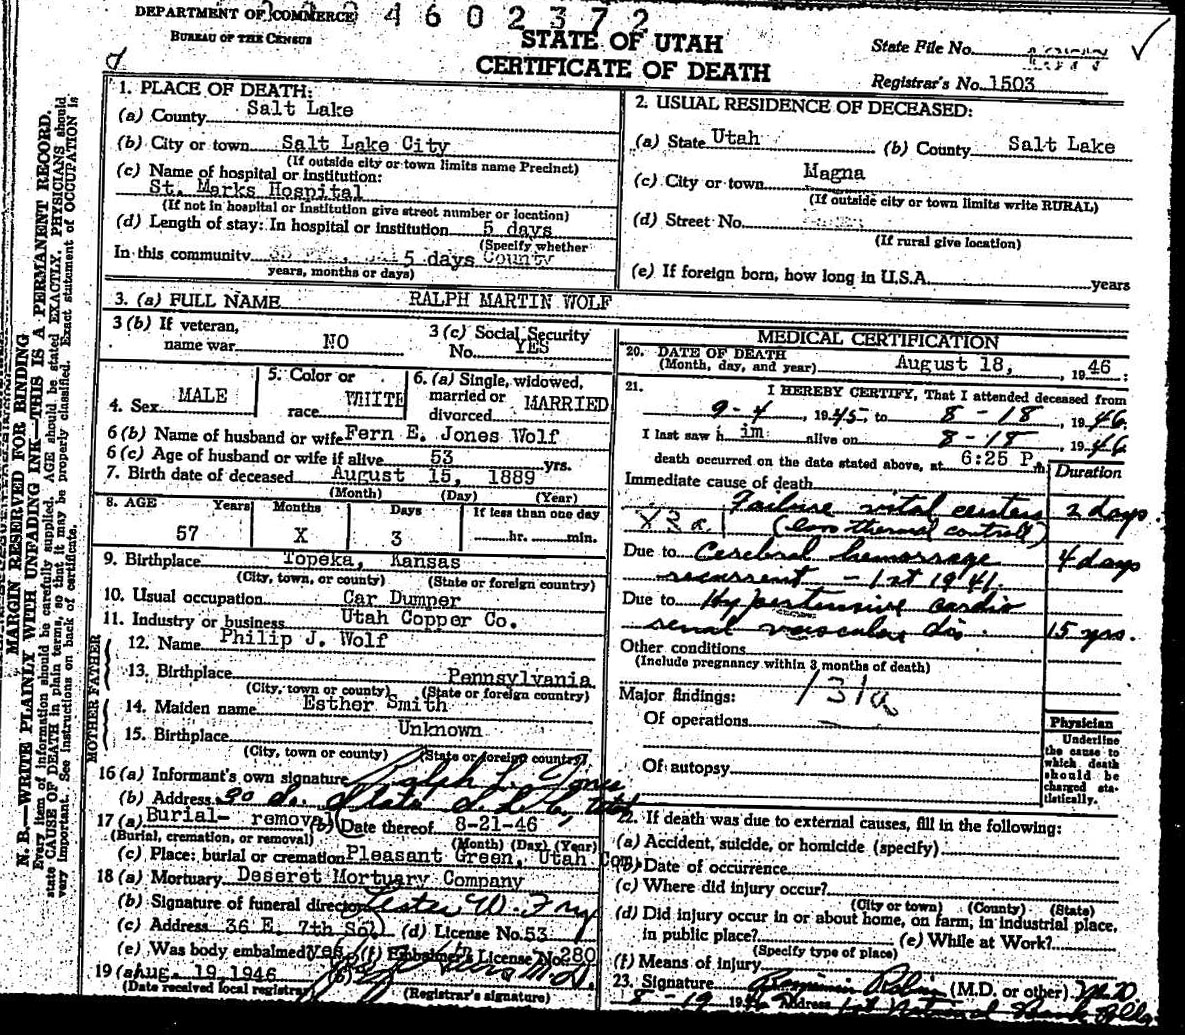 DEPARTMENT OF COMMERCE
BUREAU OF THE CENSUS
4602372
STATE OF UTAH
CERTIFICATE OF DEATH
State File No.
Registrar's No. 1503
MARGIN RESERVED FOR BINDING
N. B.—WRITE PLAINLY WITH UNFADING INK—THIS IS A PERMANENT RECORD.
Every item of information should be carefully supplied. AGE should be stated EXACTLY. PHYSICIANS should
state CAUSE OF DEATH in plain terms, so that it may be properly classified. Exact statement of OCCUPATION is
very important. See instructions on back of certificate.
1. PLACE OF DEATH:
(a) County Salt Lake
(b) City or town Salt Lake City
(If outside city or town limits name Precinct)
(c) Name of hospital or institution:
St. Marks Hospital
(If not in hospital or institution give street number or location)
(d) Length of stay: In hospital or institution 5 days
(Specify whether
In this community 5 days County
years, months or days)
2. USUAL RESIDENCE OF DECEASED:
(a) State Utah (b) County Salt Lake
(c) City or town Magna
(If outside city or town limits write RURAL)
(d) Street No.
(If rural give location)
(e) If foreign born, how long in U.S.A. years
3. (a) FULL NAME RALPH MARTIN WOLF
3 (b) If veteran, name war NO
3 (c) Social Security No. YES
4. Sex MALE
5. Color or race WHITE
6. (a) Single, widowed, married or divorced MARRIED
6 (b) Name of husband or wife Fern E. Jones Wolf
6 (c) Age of husband or wife if alive 53 yrs.
7. Birth date of deceased August 15, 1889
(Month) (Day) (Year)
8. AGE Years Months Days If less than one day
57 X 3 hr. min.
9. Birthplace Topeka, Kansas
(City, town, or county) (State or foreign country)
10. Usual occupation Car Dumper
11. Industry or business Utah Copper Co.
FATHER
12. Name Philip J. Wolf
13. Birthplace Pennsylvania
(City, town or county) (State or foreign country)
MOTHER
14. Maiden name Esther Smith
15. Birthplace Unknown
(City, town or county) (State or foreign country)
16 (a) Informant's own signature Ralph L. Jones
(b) Address 30 So. State S. L. C., Utah
17 (a) Burial- removal (b) Date thereof 8-21-46
(Burial, cremation, or removal) (Month) (Day) (Year)
(c) Place: burial or cremation Pleasant Green, Utah Com.
18 (a) Mortuary Deseret Mortuary Company
(b) Signature of funeral director Lester W. Fry
(c) Address 36 E. 7th So. (d) License No. 53
(e) Was body embalmed? yes (f) Embalmer's License No. 280
19 (a) Aug. 19 1946 (b) M.D.
(Date received local registrar) (Registrar's signature)
MEDICAL CERTIFICATION
20. DATE OF DEATH
(Month, day, and year) August 18, , 1946 :
21. I HEREBY CERTIFY, That I attended deceased from
9-4 , 1945, to 8-18 , 1946.
I last saw h im alive on 8-18 , 1946
death occurred on the date stated above, at 6:25 P. m.
Duration
Immediate cause of death
Failure vital centers 2 days
(Loss thermal controll)
Due to Cerebral hemorrage 4 days
recurrent - 1st 1941.
Due to Hypertensive cardio
renal vascular dis. 15 yrs.
Other conditions
(Include pregnancy within 3 months of death)
Major findings: 131a
Of operations
Of autopsy
Physician
Underline
the cause to
which death
should be
charged sta-
tistically.
22. If death was due to external causes, fill in the following:
(a) Accident, suicide, or homicide (specify)
(b) Date of occurrence
(c) Where did injury occur?
(City or town) (County) (State)
(d) Did injury occur in or about home, on farm, in industrial place,
in public place? (e) While at Work?
(Specify type of place)
(f) Means of injury
23. Signature Benjamin (M.D. or other) M D
8-19 194 Address 1st National Bank Bldg.